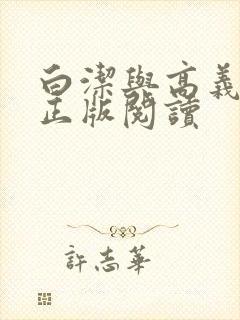 白潔與高義
正版閱讀
許志華